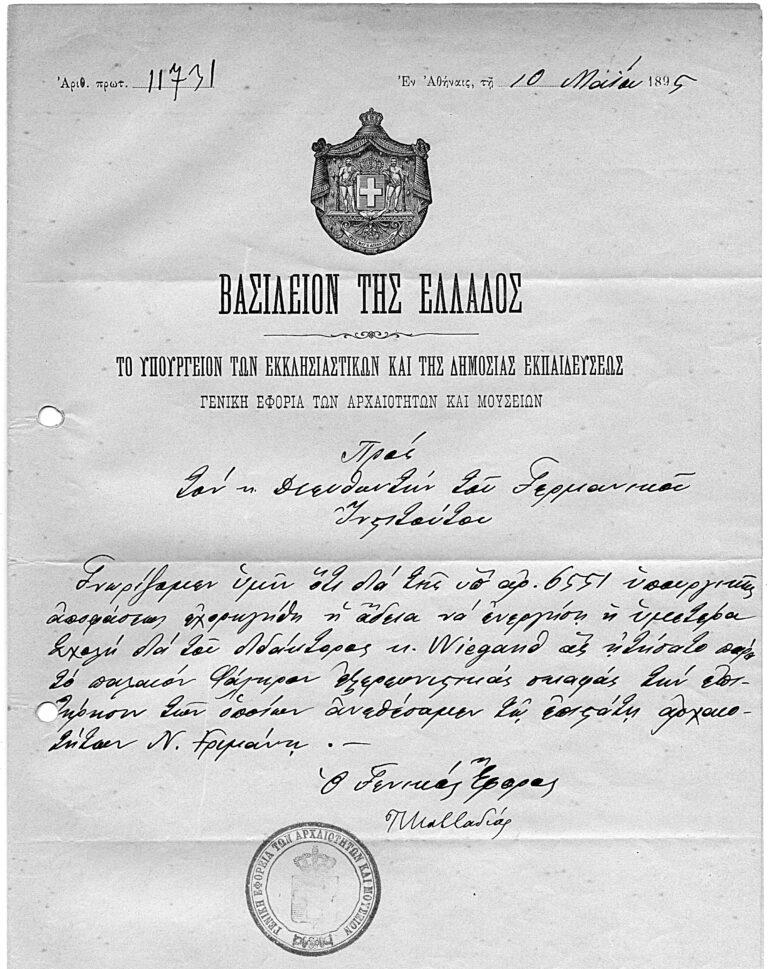 Ἀριθ. πρωτ. 11731
Ἐν Ἀθήναις, τῇ 10 Μαΐου 1895
ΒΑΣΙΛΕΙΟΝ ΤΗΣ ΕΛΛΑΔΟΣ
ΤΟ ΥΠΟΥΡΓΕΙΟΝ ΤΩΝ ΕΚΚΛΗΣΙΑΣΤΙΚΩΝ ΚΑΙ ΤΗΣ ΔΗΜΟΣΙΑΣ ΕΚΠΑΙΔΕΥΣΕΩΣ
ΓΕΝΙΚΗ ΕΦΟΡΙΑ ΤΩΝ ΑΡΧΑΙΟΤΗΤΩΝ ΚΑΙ ΜΟΥΣΕΙΩΝ
Πρὸς
τὸν κ. Διευθυντὴν τοῦ Γερμανικοῦ
Ἰνστιτούτου
Γνωρίζομεν ὑμῖν ὅτι διὰ τῆς ὑπ' ἀρ. 6551 ὑπουργικῆς
ἀποφάσεως ἐχορηγήθη ἡ ἄδεια νὰ ἐνεργήσῃ ἡ ὑμετέρα
Σχολὴ διὰ τοῦ διδάκτορος κ. Wiegand ἃς ᾐτήσατο παρὰ
τὸ παλαιὸν Φάληρον ἐξερευνητικὰς σκαφάς τὴν ἐπι-
τήρησιν τῶν ὁποίων ἀνεθέσαμεν τῷ ἐπιστάτῃ ἀρχαιο-
τήτων Ν.
Ὁ Γενικὸς Ἔφορος
Π Καββαδίας
ΓΕΝΙΚΗ ΕΦΟΡΕΙΑ ΤΩΝ ΑΡΧΑΙΟΤΗΤΩΝ ΚΑΙ ΜΟΥΣΕΙΩΝ